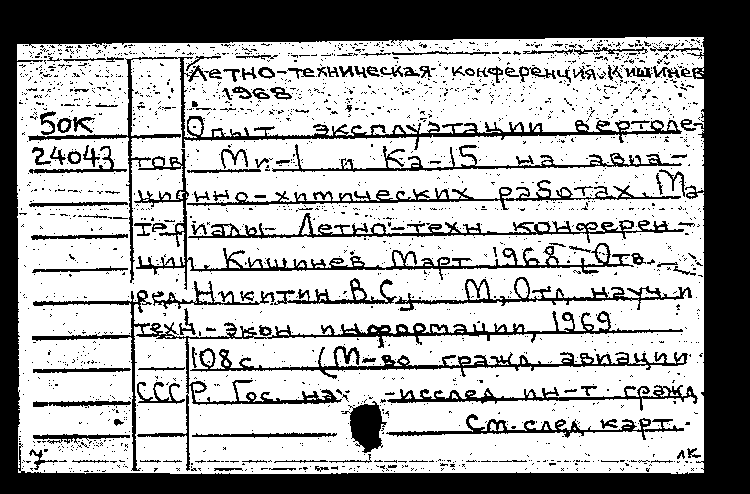 Летно-техническая конференция. Кишинев
1968
50К
Опыт эксплуатации вертоле-
24043 тов Ми-1 и Ка-15 на авиа-
ционно-химических работах. Ма-
териалы Летно-техн. конферен-
ции. Кишинев. Март 1968. [Отв.
ред. Никитин В.С.] М., Отд. науч. и
техн.-экон информации, 1969.
108 с. (М-во гражд. авиации
СССР. Гос. -исслед. ин-т гражд.
См. след. карт.
лк